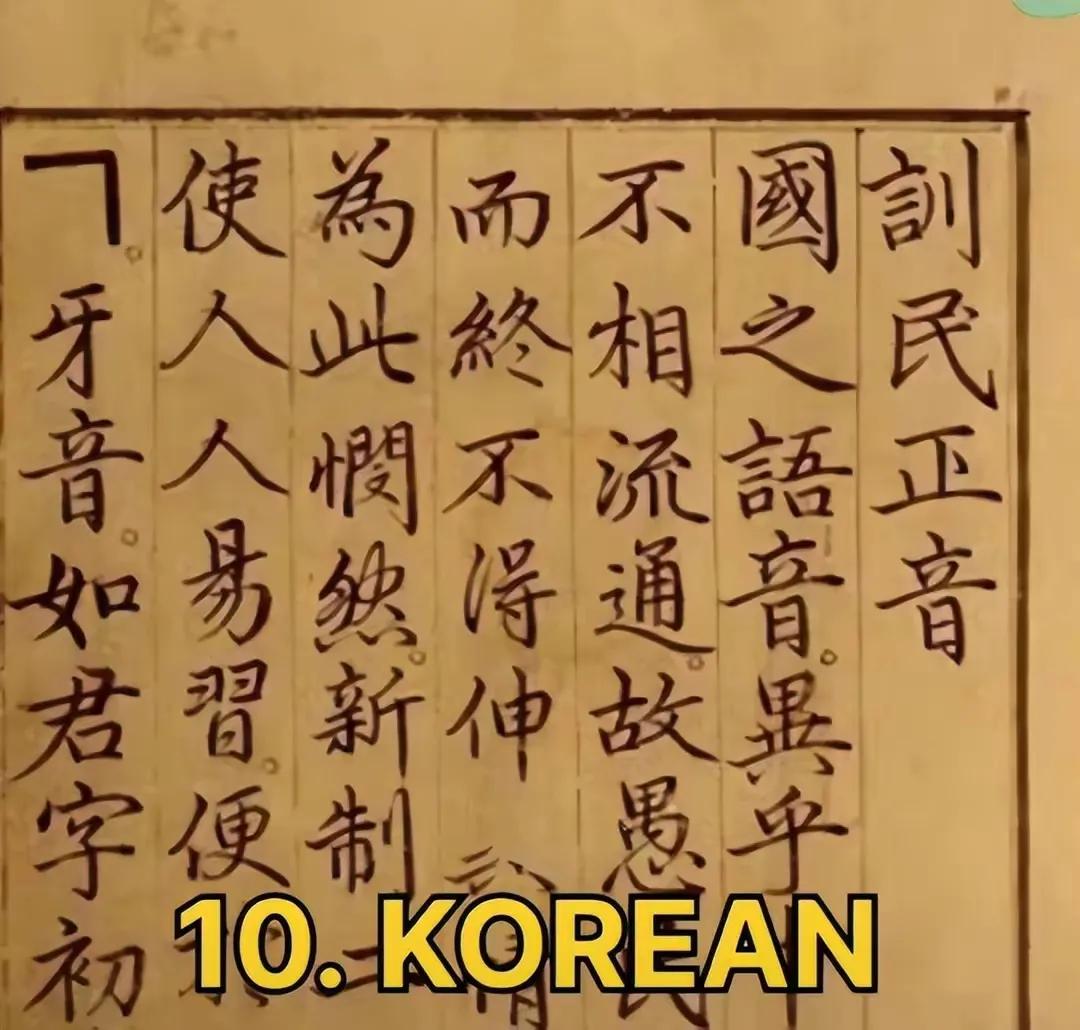 訓民正音
國之語音。異乎
不相流通。故愚民
而終不得伸情
為此憫然。新制二
使人人易習。便
ㄱ。牙音。如君字初
10. KOREAN